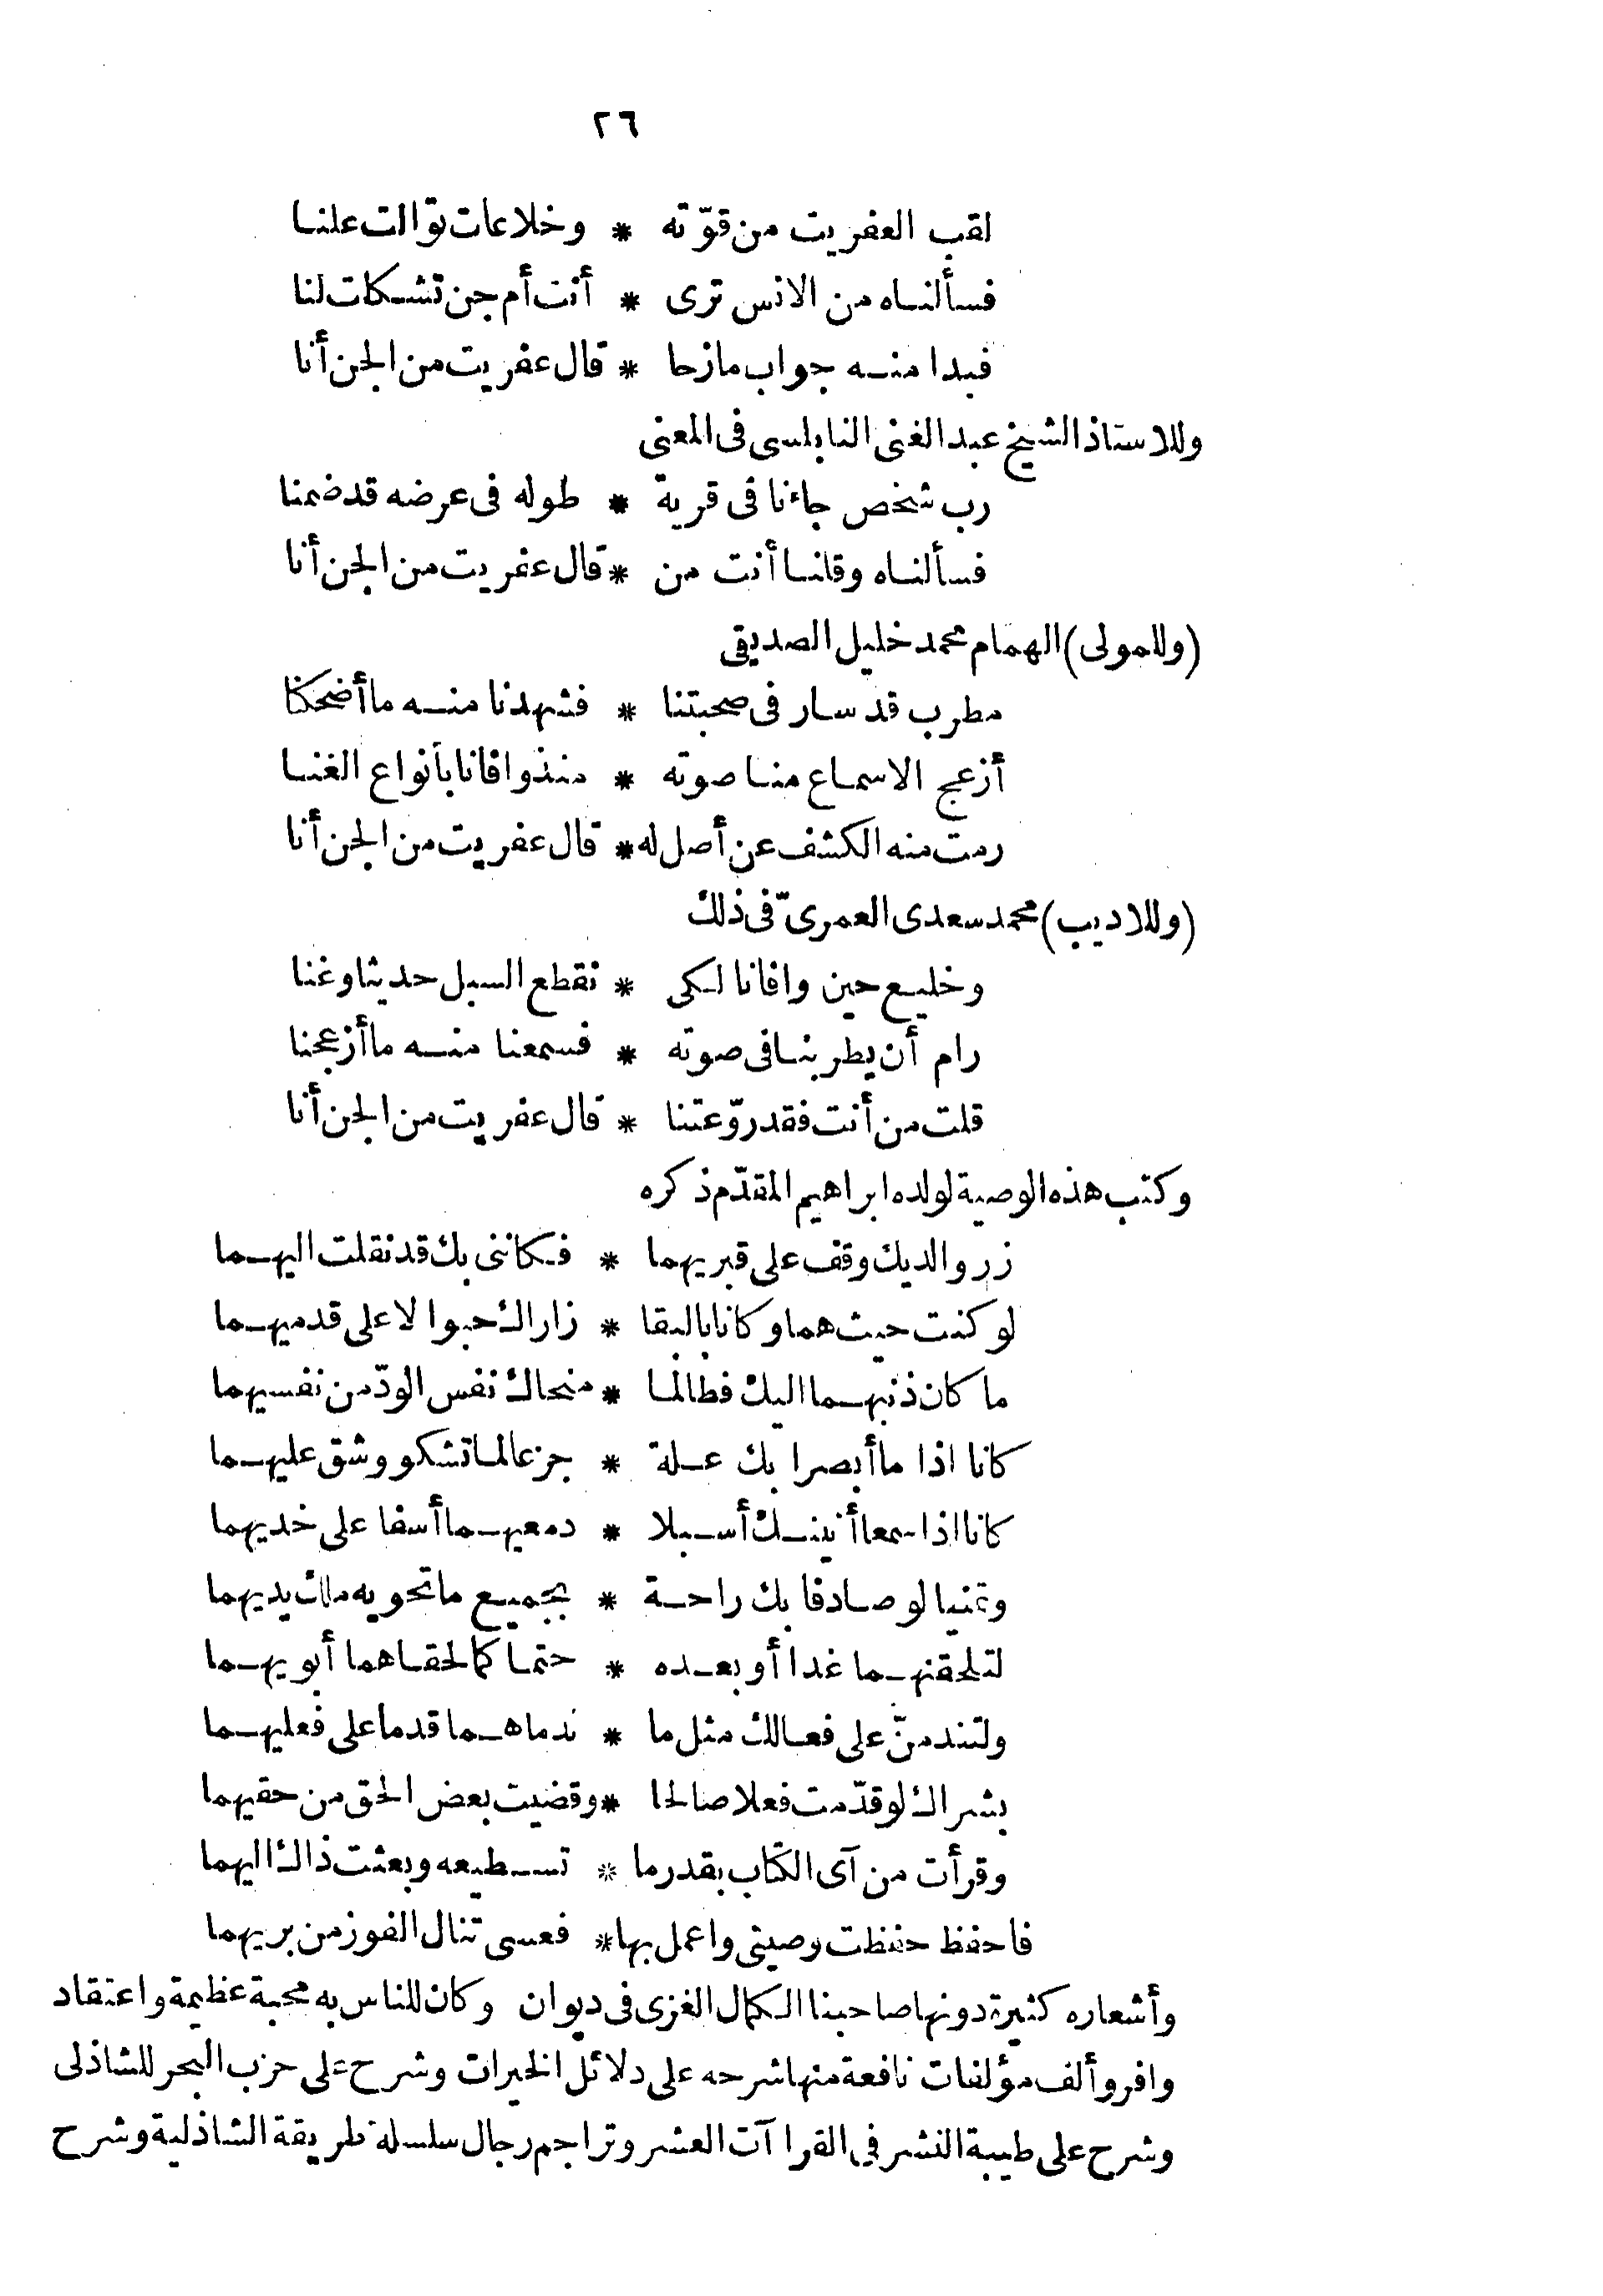 ٢٦
لقب العفريت من قوّته * وخلاعات توالت علنا
فسألناه من الانس ترى * أنت أم جن تشكلت لنا
فبدا منه جواب مازحا * قال عفريت من الجن أنا
وللاستاذ الشيخ عبد الغنى النابلسى فى المعنى
رب شخص جاءنا فى قرية * طوله فى عرضه قد ضمنا
فسألناه وقلنا أنت من * قال عفريت من الجن أنا
(وللمولى) الهمام محمد خليل الصديقى
مطرب قد سار فى صحبتنا * فشهدنا منه ما أضحكنا
أزعج الاسماع منا صوته * منذ وافانا بأنواع الغنا
رمت منه الكشف عن أصل له * قال عفريت من الجن أنا
(وللاديب) محمد سعدى العمرىّ فى ذلك
وخليع حين وافانا لكى * نقطع السبل حديثا وغنا
رام أن يطربنا فى صوته * فسمعنا منه ما أزعجنا
قلت من أنت فقد روّعتنا * قال عفريت من الجن أنا
وكتب هذه الوصية لولده ابراهيم المقدّم ذكره
زر والديك وقف على قبريهما * فكاننى بك قد نقلت اليهما
لو كنت حيث هما وكانا بالبقا * زاراك حبوا لا على قدميهما
ما كان ذنبهما اليك فطالما * منحاك نفس الودّ من نفسيهما
كانا اذا ما أبصرا بك علة * جزعا لما تشكو وشق عليهما
كانا اذا سمعا أنينك أسبلا * دمعيهما أسفا على خديهما
وتمنيا لو صادفا بك راحة * بجميع ما تحويه ملك يديهما
لتلحقنهما غدا أو بعده * حتما كما لحقا هما أبويهما
ولتندمنّ على فعالك مثل ما * ندما هما قدما على فعليهما
بشراك لو قدّمت فعلا صالحا * وقضيت بعض الحق من حقيهما
وقرأت من آى الكتاب بقدر ما * تسطيعه وبعثت ذاك اليهما
فاحفظ حفظت وصيتى واعمل بها * فعسى تنال الفوز من بريهما
وأشعاره كثيرة دونها صاحبنا الكمال الغزى فى ديوان وكان للناس به محبة عظيمة واعتقاد
وافر وألف مؤلفات نافعة منها شرحه على دلائل الخيرات وشرح على حزب البحر للشاذلى
وشرح على طيبة النشر فى القراآت العشر وتراجم رجال سلسلة طريقة الشاذلية وشرح